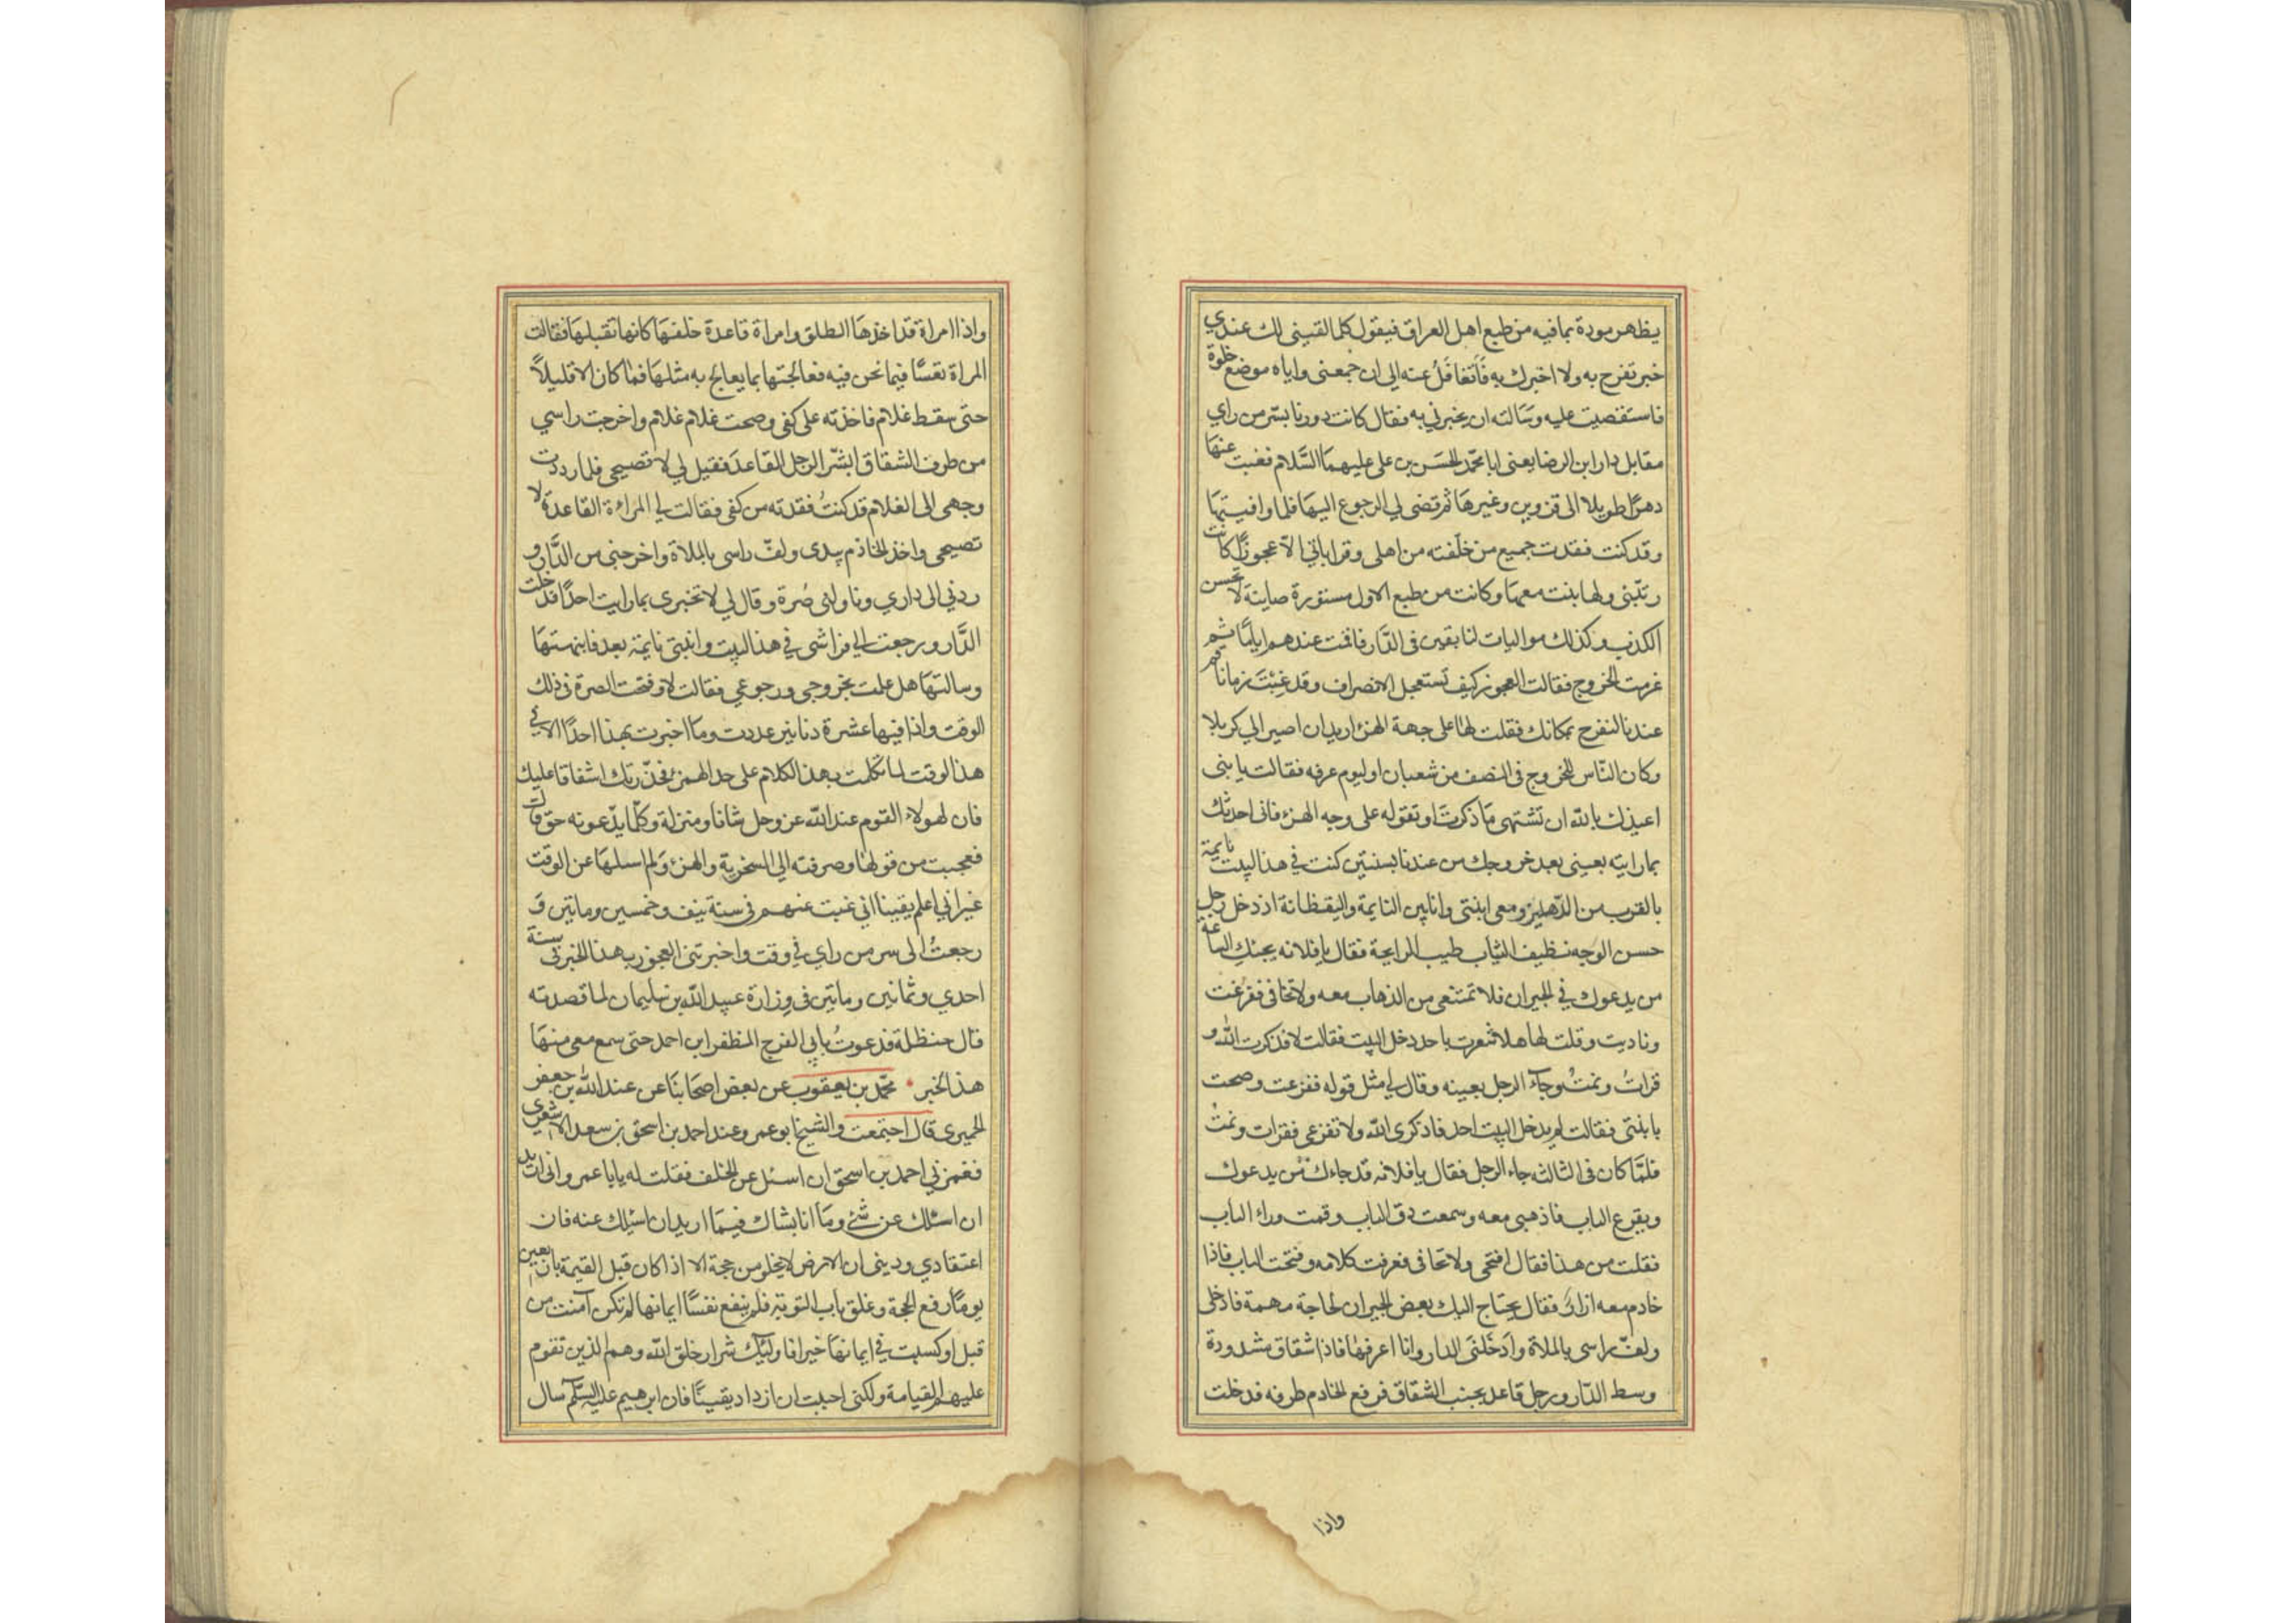 يظهر مودة بما فيه من طبع اهل العراق فيقول كلما لقيني لك عندي
خبر تفرح به ولا اخبرك به فَاَتغافَلُ عنه الى ان جمعنى واياه موضع خلوة
فاستقصيت عليه وسَالته ان يخبرني به فقال كانت دورنا بسّر من راي
مقابل دار ابن الرضا يعنى ابا محمّد الحسَن بن على عليهمَا السَّلام فغبت عنهَا
دهرًا طويلا الى قزوين وغيرهَا ثم قضى لي الرجوع اليهَا فلما وافيتهَا
وقد كنت فقدت جميع من خلّفته من اهلى وقراباتي الّا عجوزًا كانت
ربّتنى ولها بنت معهَا وكانت من طبع الاول مستورة صاينة لا تحسن
الكذب وكذلك مواليات لنا بقين فى الدَّار فاقمت عندهم ايامًا ثم
عزمت الخروج فقالت العجوز كيف تستعجل الانصراف وقد غِبْتَ زمانًا فاقم
عندنا لنفرح بمكانك فقلت لهَا على جهة الهزء اريد ان اصير الي كربلا
وكان النّاس للخروج فى النصف من شعبان او ليوم عرفه فقالت يا بنى
اعيذك بالله ان تشتهى مَا ذكرتَ او تقوله على وجه الهزء فانى احدثك
بما رايته بعينى بعد خروجك من عندنا بسنتين كنت في هذا البيت نايمة
بالقرب من الدّهليز ومعى ابنتى وانا بين النايمة واليقظانة اذ دخل رجل
حسن الوجه نظيف الثياب طيب الرايحة فقال يا فلانه يجئك الساعة
من يدعوك في الجيران فلا تمتنعى من الذهاب معه ولا تخافى ففزعت
وناديت وقلت لها هل شعرت باحد دخل البيت فقالت لا فذكرت الله و
قراتُ ونمتُ وجآء الرجل بعينه وقال لي مثل قوله ففزعت وصحت
بابنتى فقالت لم يدخل البيت احد فاذكرى الله ولا تفزعى فقرات ونمتُ
فلمَّا كان فى الثالثه جاء الرجل فقال يا فلانه قد جاءك من يدعوك
ويقرع الباب فاذهبى معه وسمعت دق الباب وقمت وراء الباب
فقلت من هذا فقال افتحى ولا تخافى فعرفت كلامه وفتحت الباب فاذا
خادم معه ازار فقال يحتاج اليك بعض الجيران لحاجة مهمة فادخلى
ولفّ راسى بالملاة وادخَلنَى الدار وانا اعرفهَا فاذا شقاق مشدودة
وسط الدّار ورجل قاعد بجنب الشقاق فرفع الخادم طرفه فدخلت
واذا
واذا امراة قد اخذهَا الطلق وامراة قاعدة خلفهَا كانها تقبلهَا فقالت
المراة تفسًّا فيما نحن فيه فعالجتها بما يعالج به مثلهَا فمَا كان الا قليلًا
حتى سقط غلام فاخذته على كفى وصحت غلام غلام واخرجت راسي
من طرف الشقاق ابشّر الرجل القاعدَ فقيل لي لا تصيحى فلما رددت
وجهى الى الغلام قد كنتُ فقدته من كفى فقالت لي المراءة القاعدة لا
تصيحى واخذ الخاذم بيدى ولفّ راسى بالملاة واخرجنى من الدَّار و
ردني الى داري وناولنى صُرة وقال لي لا تخبرى بما رايت احدًا فدخلت
الدَّار ورجعت الي فراشى في هذا البيت وابنتى نايمة بعد فانبهتهَا
وسالتهَا هل علمت بخروجي ورجوعي فقالت لا وفتحت الصرة فى ذلك
الوقت واذا فيها عشرة دنانير عددت ومَا اخبرت بهذا احدًا الا في
هذا الوقت لما تكلمت بهذا الكلام على حد الهمزء فحذّرتك اشفاقا عليك
فان لهولاء القوم عند الله عز وجل شانا ومنزلة وكلّما يدّعونه حق قالت
فعجبت من قولهَا وصرفته الي السخريّة والهزء وَلم اسالهَا عن الوقت
غير اني اعلم يقينا انى غبت عنهم فى سنة نيف وخمسين وماتين وَ
رجعتُ الى سر من راي في وقت واخبرتنى العجوز بهذا الخبر فى سنة
احدي وثمانين وماتين فى وِزارة عبيد الله بن سليمان لما قصدته
قال حنظلة فدعوتُ بابي الفرج المظفر ابن احمد حتى سمع معى منهَا
هذا الخبر • محمّد بن يعقوب عن بعض اصحَابنَا عن عند الله بن جعفر
الحميرى قال اجتمعت والشيخ ابو عمرو عند احمد بن اسحق بن سعد الاشعري
فغمزني احمد بن اسحق ان اسئل عن الخلف فقلت له يا با عمرو انى اريد
ان اسئلك عن شئ ومَا انا بشاك فيمَا اريد ان اسئلك عنه فان
اعتقادي ودينى ان الارض لا يخلو من حجة الا اذا كان قبل القيمة باربعين
يومًا رفع الحجة وغلق باب التوبة فلم ينفع نفسًا ايمانها لم تكن آمنت من
قبل او كسبت في ايمانهَا خيرا فاولئك شرار خلق الله وهم الذين تقوم
عليهم القيامة ولكنى احببت ان ازداد يقينًا فان ابرهيم عليه السّلم سال